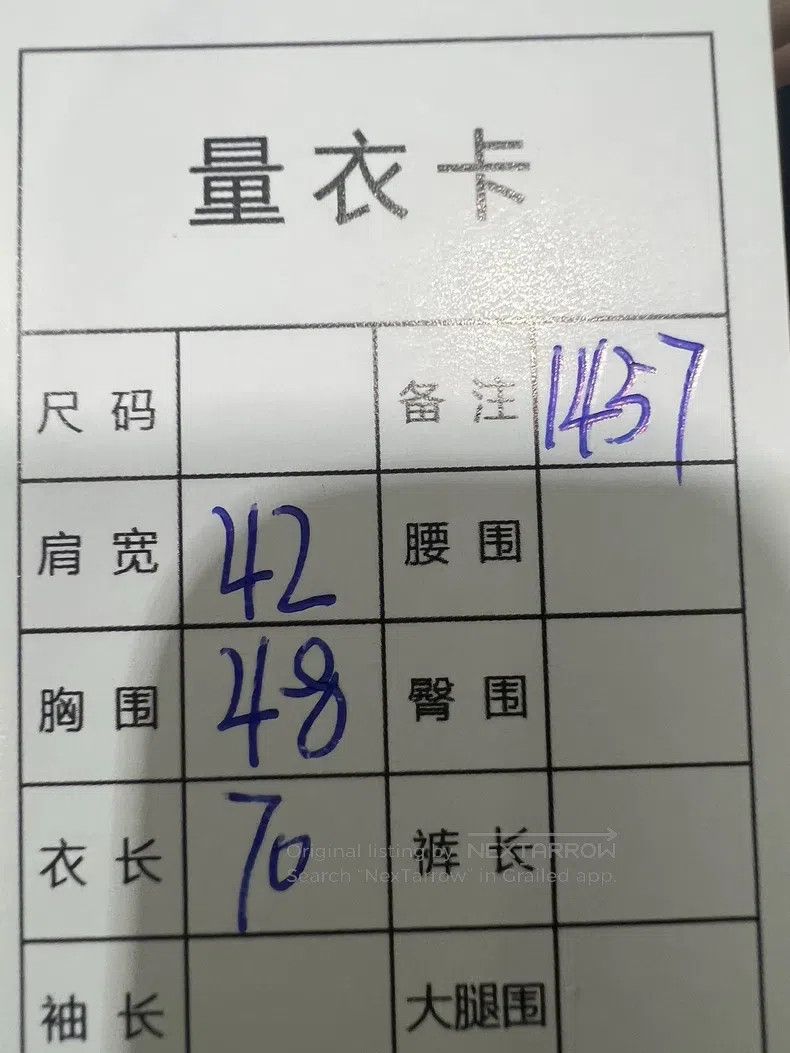 量衣卡
尺码 备注 1457
肩宽 42 腰围
胸围 48 臀围
衣长 70 裤长
Original listing by NEXTARROW
Search "NexTarrow" in Grailed app.
袖长 大腿围